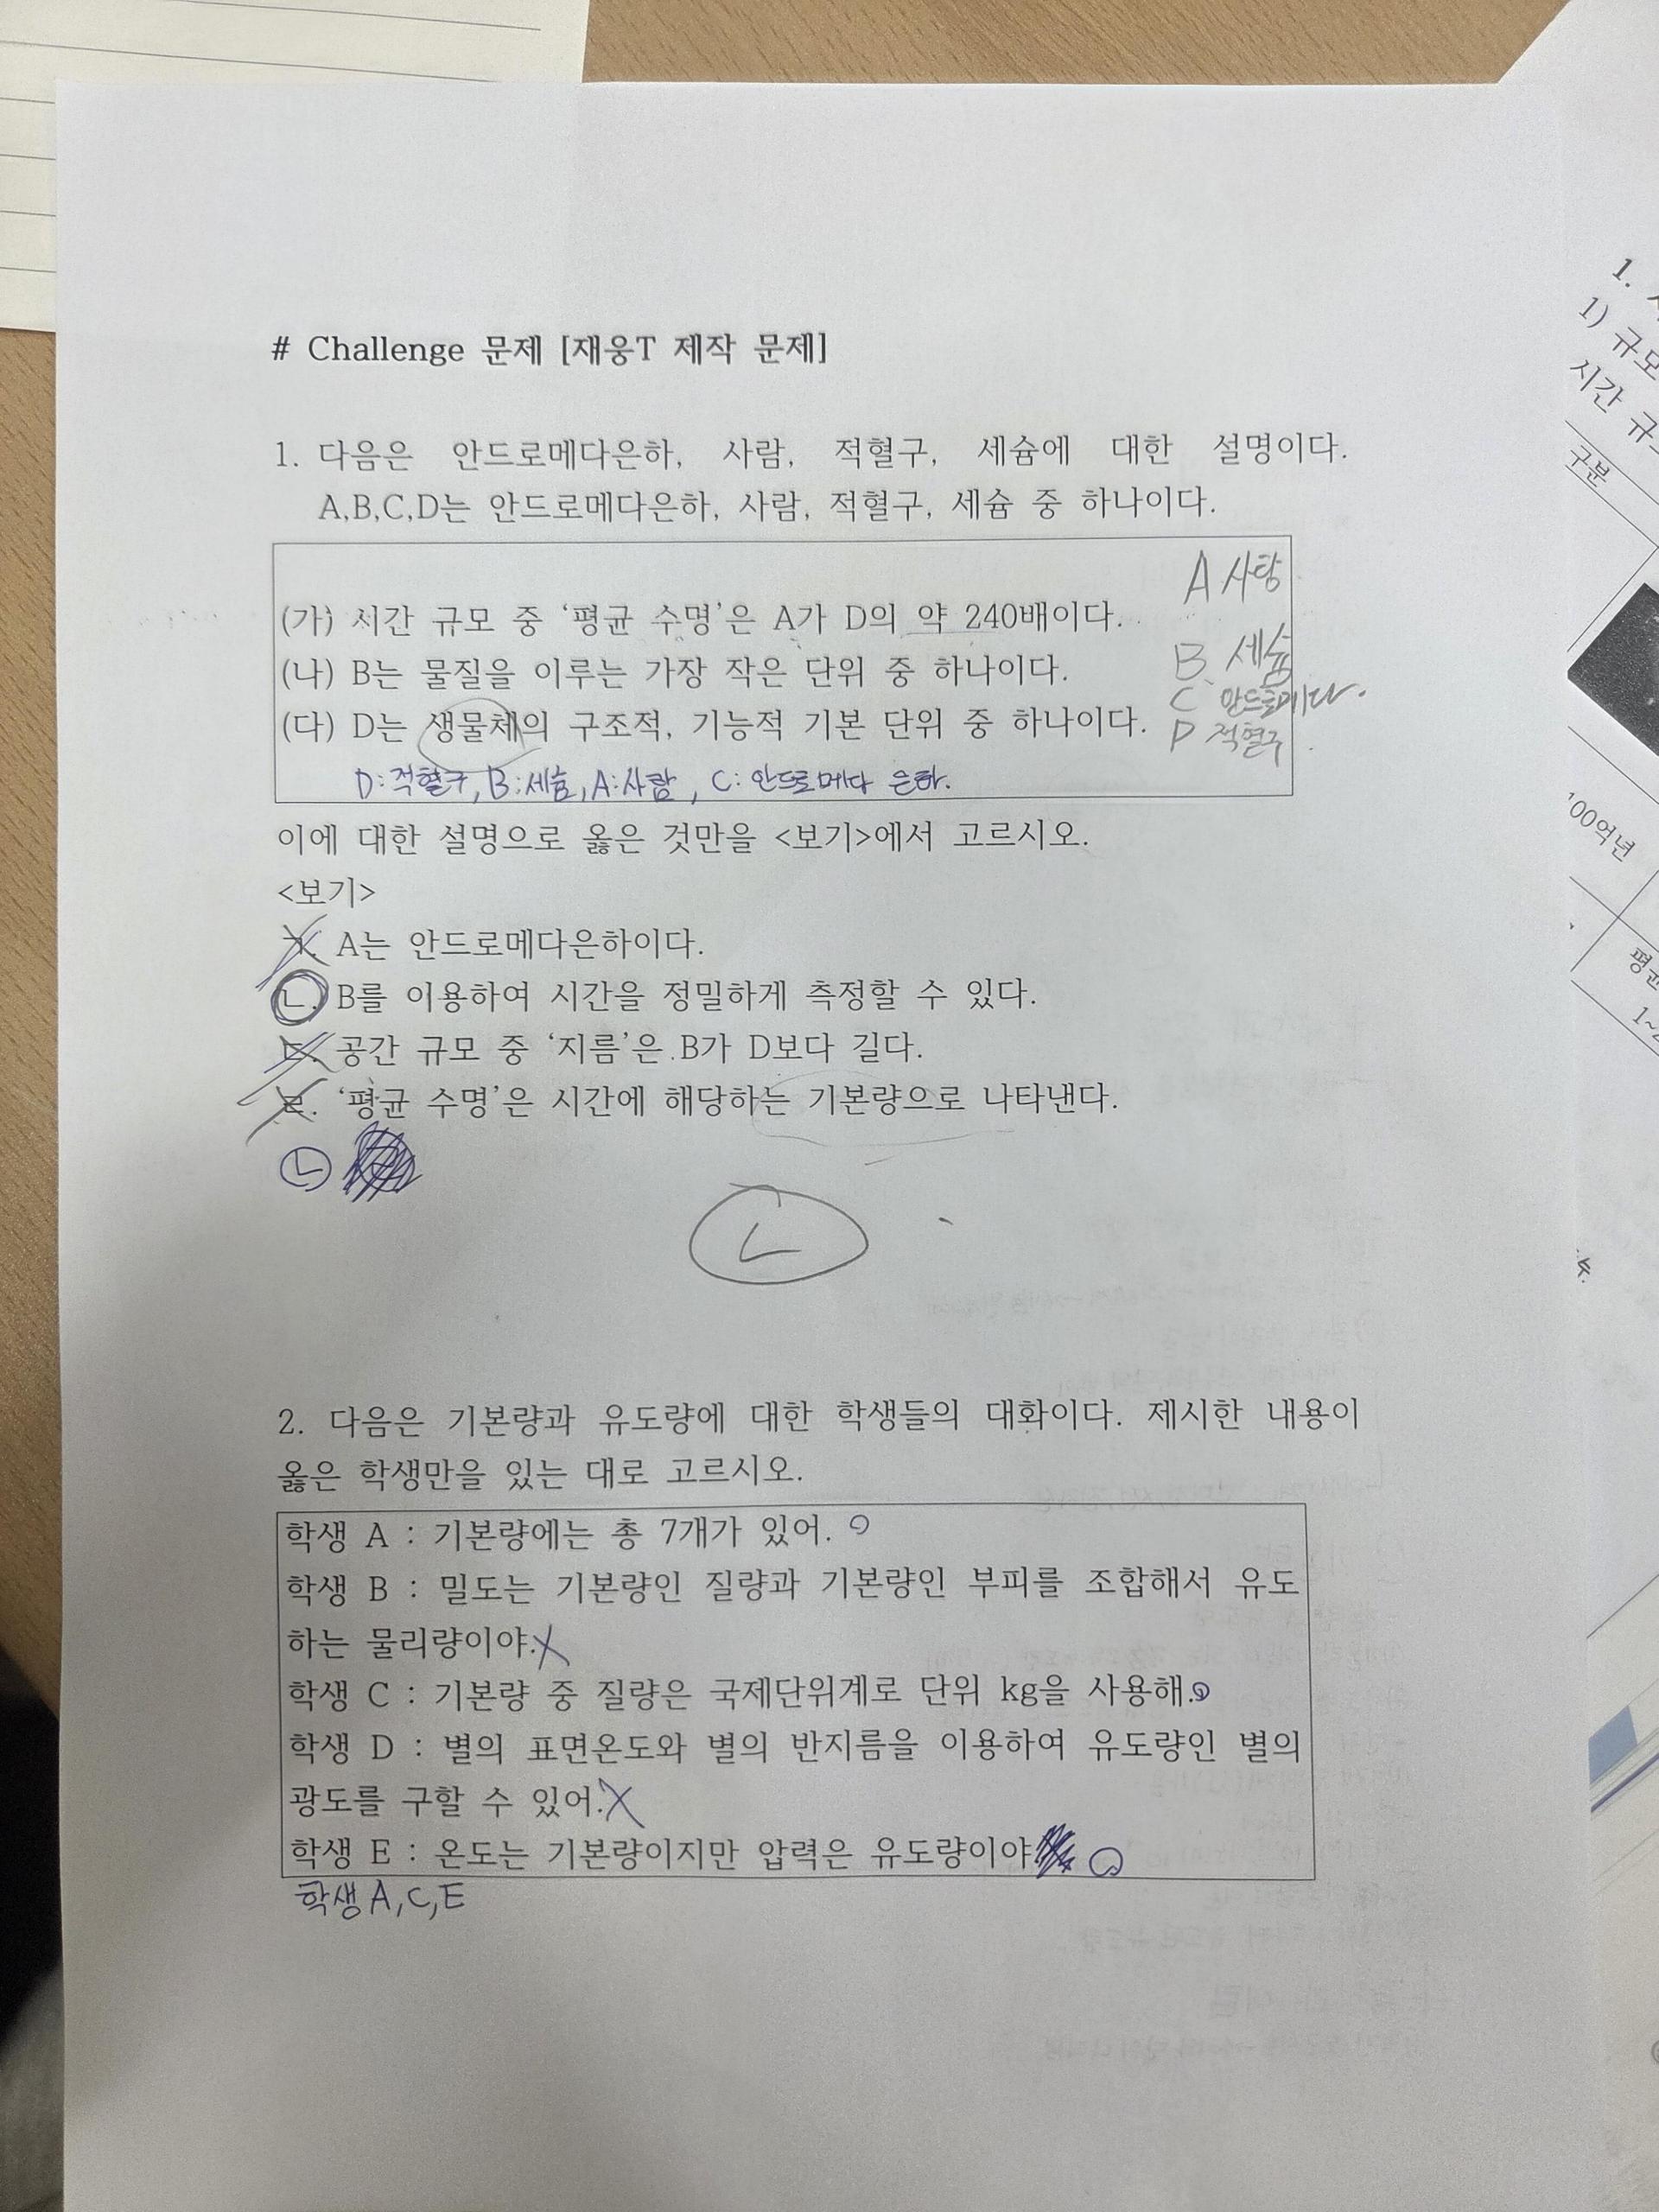 # Challenge 문제 [재웅T 제작 문제]
1. 다음은 안드로메다은하, 사람, 적혈구, 세슘에 대한 설명이다.
A,B,C,D는 안드로메다은하, 사람, 적혈구, 세슘 중 하나이다.
A 사람
(가) 시간 규모 중 '평균 수명'은 A가 D의 약 240배이다.
B 세슘
(나) B는 물질을 이루는 가장 작은 단위 중 하나이다.
C 안드로메다.
(다) D는 생물체의 구조적, 기능적 기본 단위 중 하나이다.
D 적혈구
D:적혈구, B:세슘, A:사람, C: 안드로메다 은하.
이에 대한 설명으로 옳은 것만을 <보기>에서 고르시오.
<보기>
ㄱ. A는 안드로메다은하이다.
ㄴ. B를 이용하여 시간을 정밀하게 측정할 수 있다.
ㄷ. 공간 규모 중 '지름'은 B가 D보다 길다.
ㄹ. '평균 수명'은 시간에 해당하는 기본량으로 나타낸다.
ㄴ
ㄴ
2. 다음은 기본량과 유도량에 대한 학생들의 대화이다. 제시한 내용이
옳은 학생만을 있는 대로 고르시오.
학생 A : 기본량에는 총 7개가 있어.
학생 B : 밀도는 기본량인 질량과 기본량인 부피를 조합해서 유도
하는 물리량이야.
학생 C : 기본량 중 질량은 국제단위계로 단위 kg을 사용해.
학생 D : 별의 표면온도와 별의 반지름을 이용하여 유도량인 별의
광도를 구할 수 있어.
학생 E : 온도는 기본량이지만 압력은 유도량이야
학생 A, C, E
1.
1) 규모
시간 규
구분
100억년
평균